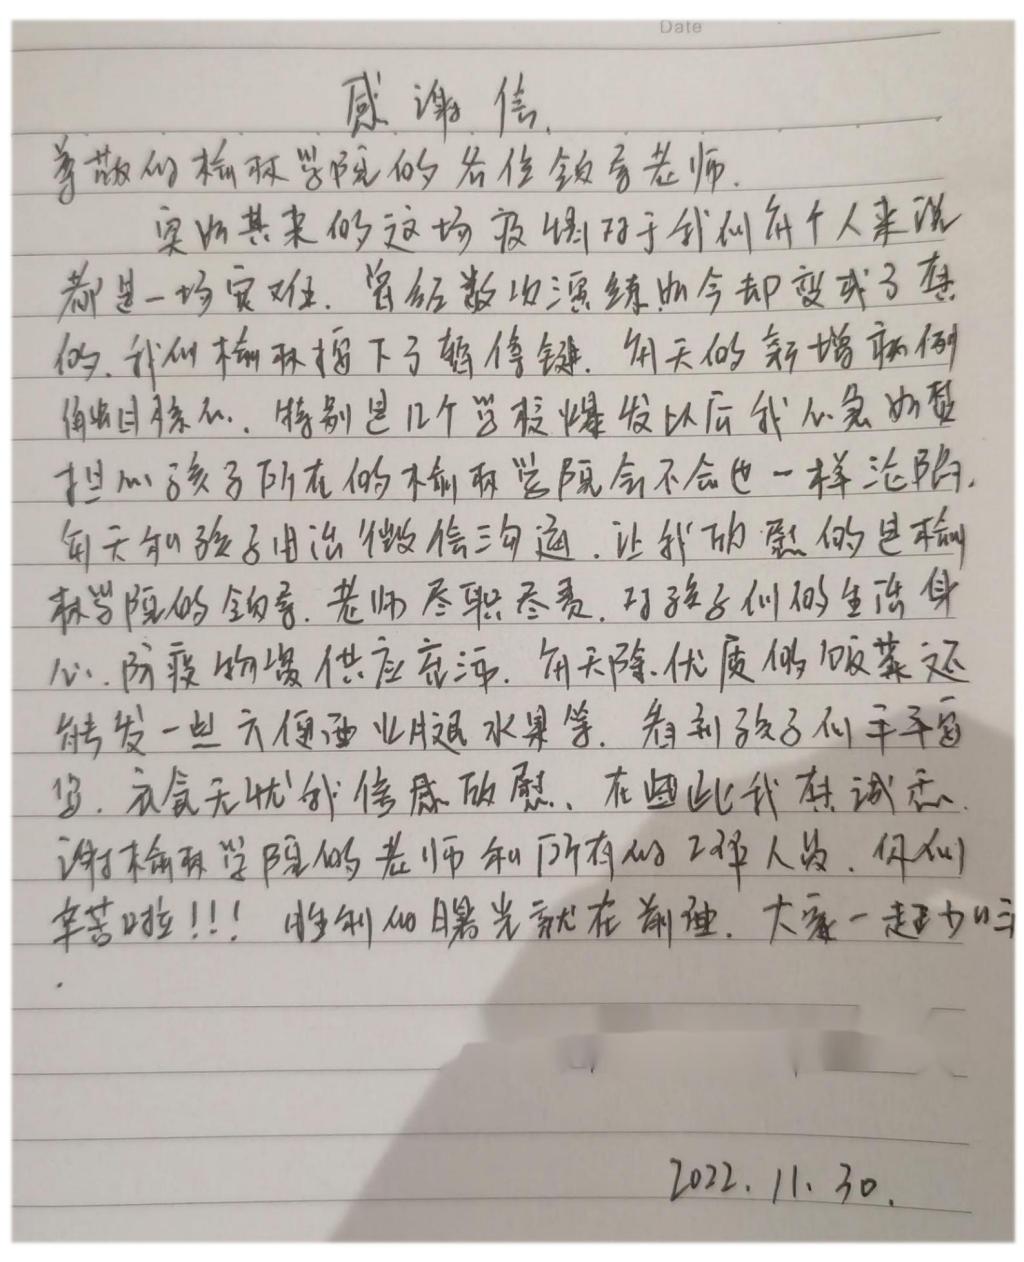 Date
感谢信.
尊敬的榆林学院的各位领导老师.
突如其来的这场疫情对于我们每个人来说
都是一场灾难. 曾经数次演练如今却变成了真
的. 我们榆林摁下了暂停键. 每天的新增病例
触目惊心. 特别是几个学校爆发以后我心急如焚
担心孩子所在的榆林学院会不会也一样沦陷.
每天和孩子电话微信沟通. 让我欣慰的是榆
林学院的领导. 老师尽职尽责. 对孩子们的生活身
心. 防疫物资供应充沛. 每天除优质的饭菜还
能发一些方便面 火腿 水果等. 看到孩子们平平安
安. 衣食无忧我倍感欣慰. 在此我真诚感
谢榆林学院的老师和所有的工作人员. 你们
辛苦啦!!! 胜利的曙光就在前面. 大家一起加油
.
2022.11.30.